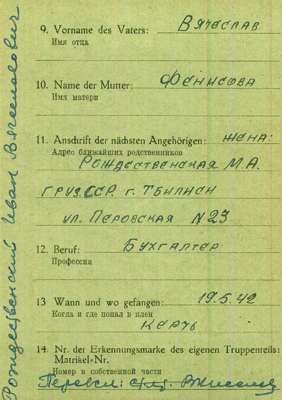 Рождественский Иван Вячеславович
9. Vorname des Vaters: Вячеслав
Имя отца
10. Name der Mutter: Фенисова
Имя матери
11. Anschrift der nächsten Angehörigen: жена:
Адрес ближайших родственников
Рождественская М.А.
Груз.ССР. г. Тбилиси
ул. Перовская N 23
12. Beruf: Бухгалтер
Профессия
13 Wann und wo gefangen: 19.5.42
Когда и где попал в плен
Керчь
14. Nr. der Erkennungsmarke des eigenen Truppenteils:
Matrikel-Nr.
Номер в собственной части
Перевел: